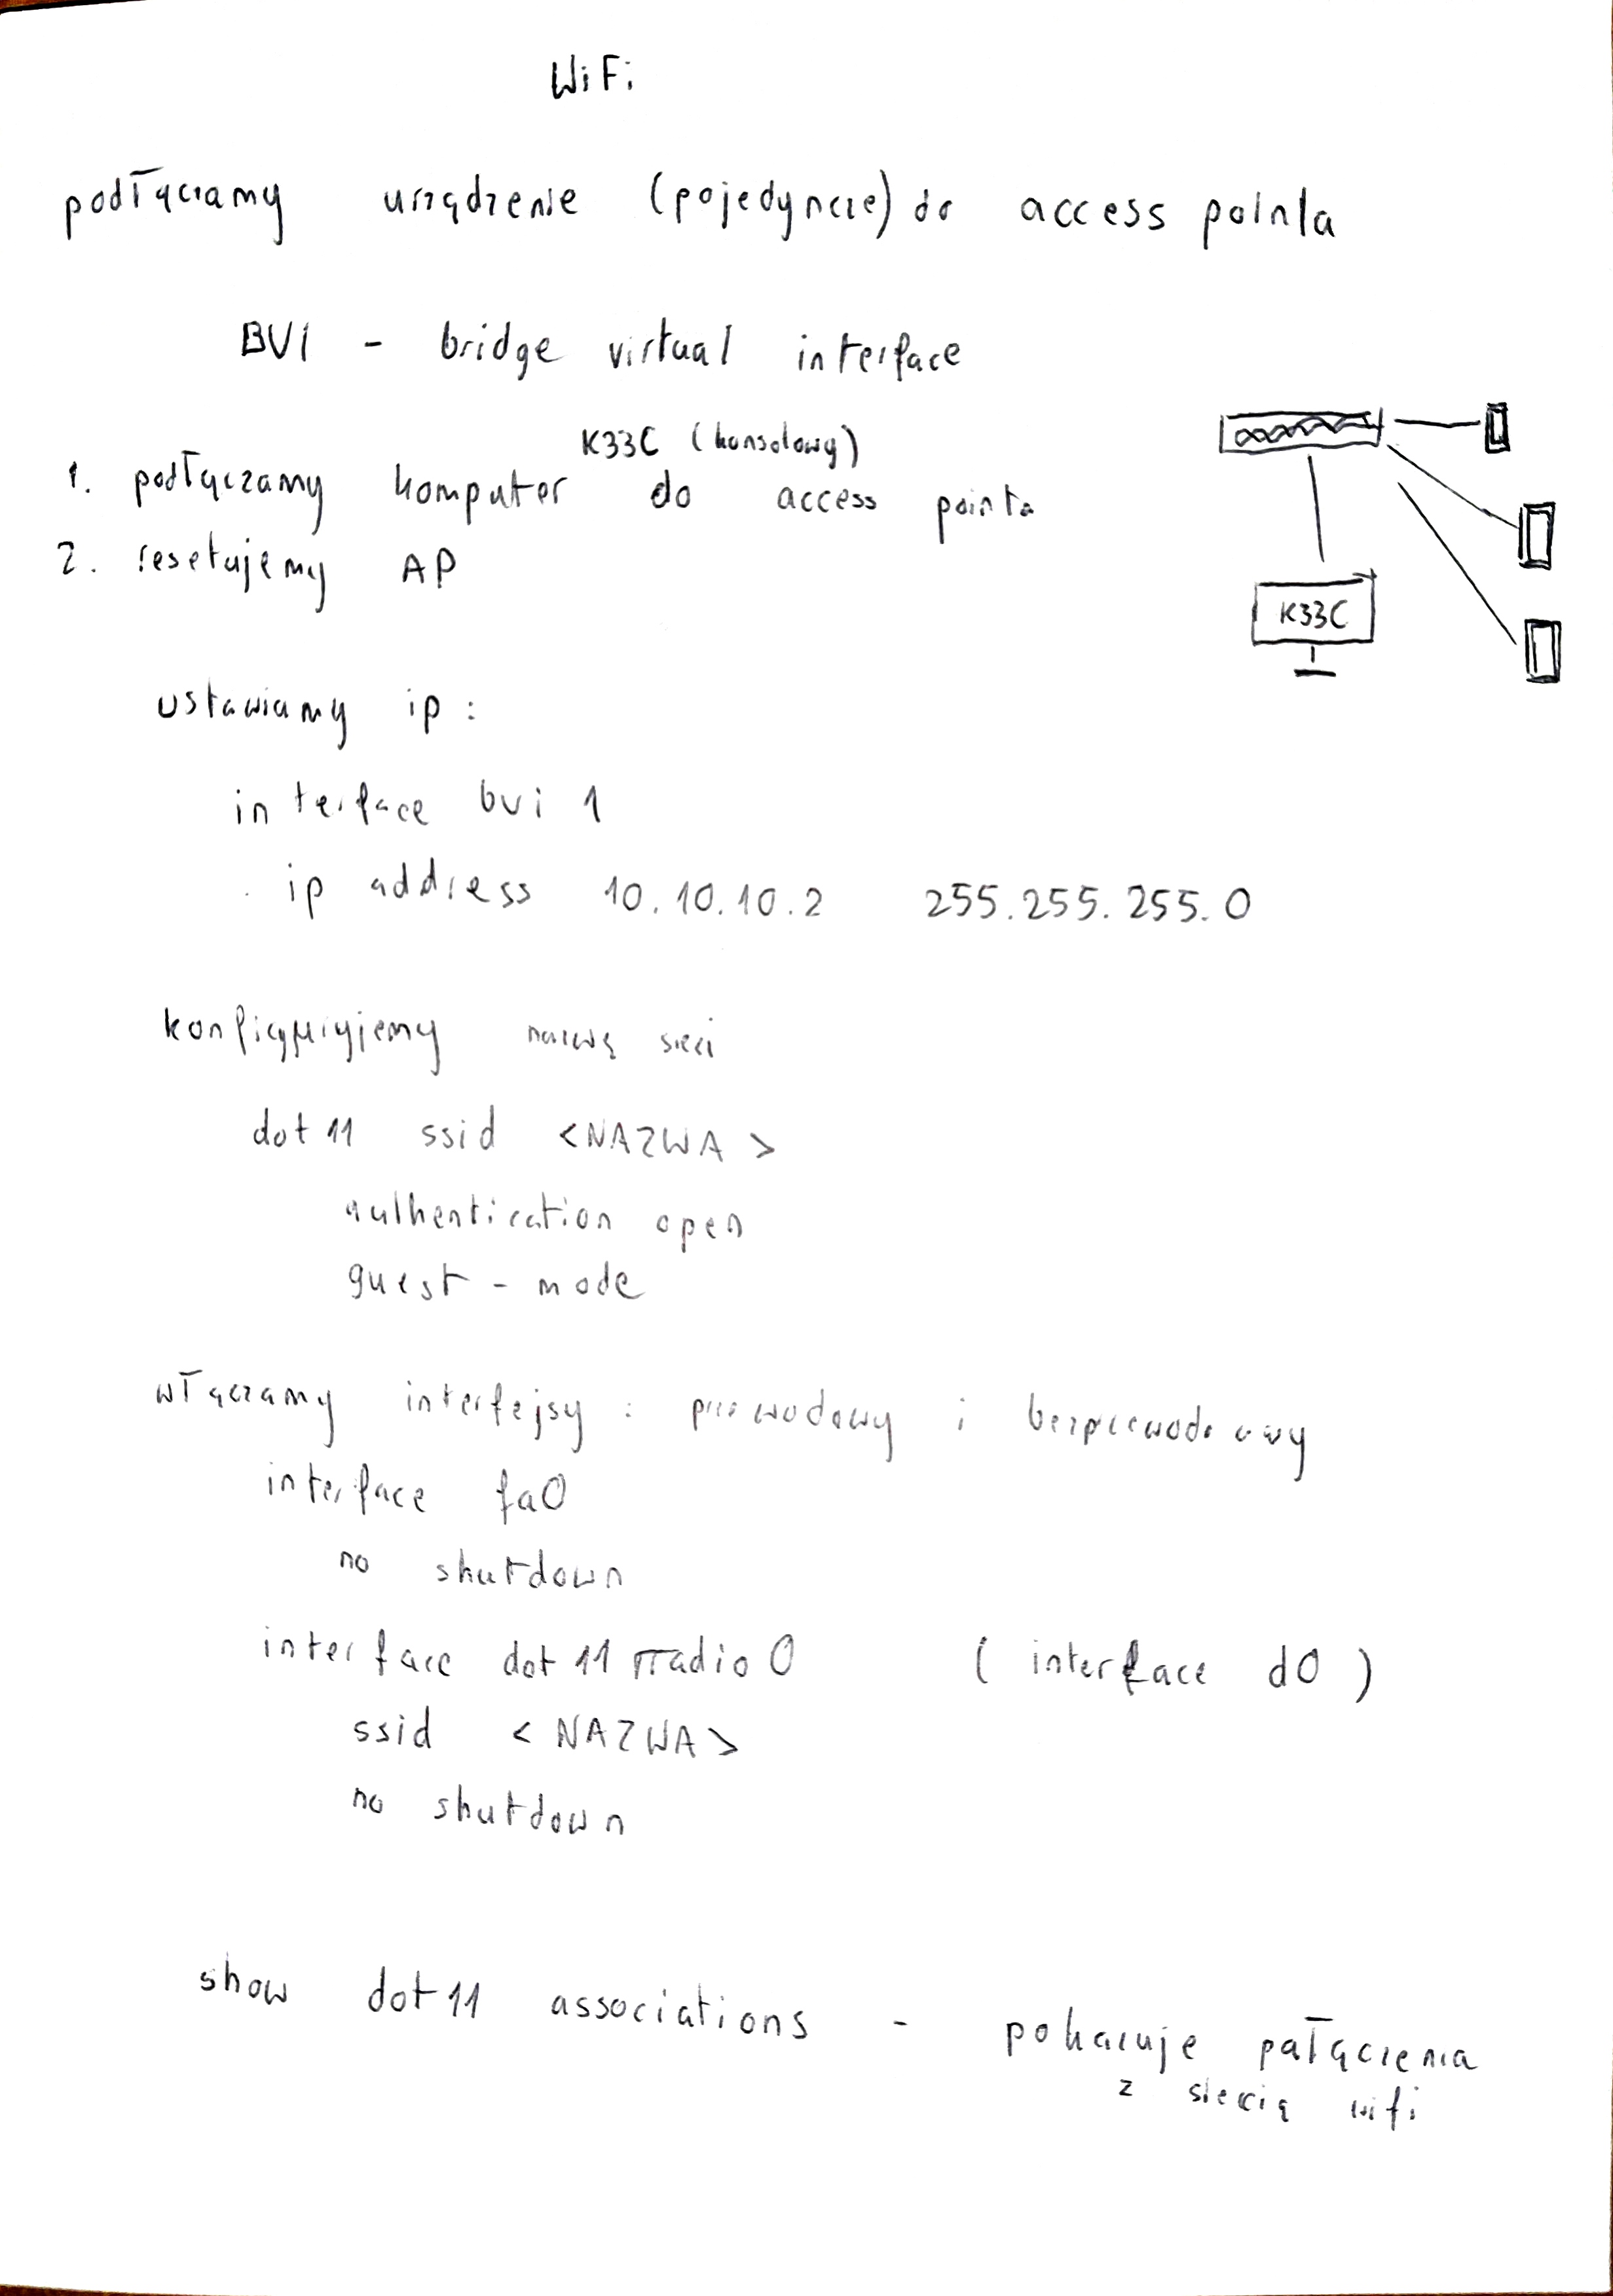 WiFi
podłączamy urządzenie (pojedyncze) do access pointa
BVI - bridge virtual interface
K33C (konsolowy)
1. podłączamy komputer do access pointa
2. resetujemy AP
K33C
ustawiamy ip:
interface bvi 1
ip address 10.10.10.2 255.255.255.0
konfigurujemy nazwę sieci
dot11 ssid <NAZWA>
authentication open
guest-mode
włączamy interfejsy: przewodowy i bezprzewodowy
interface fa0
no shutdown
interface dot11radio0 (interface d0)
ssid <NAZWA>
no shutdown
show dot11 associations - pokazuje połączenia
z siecią wifi